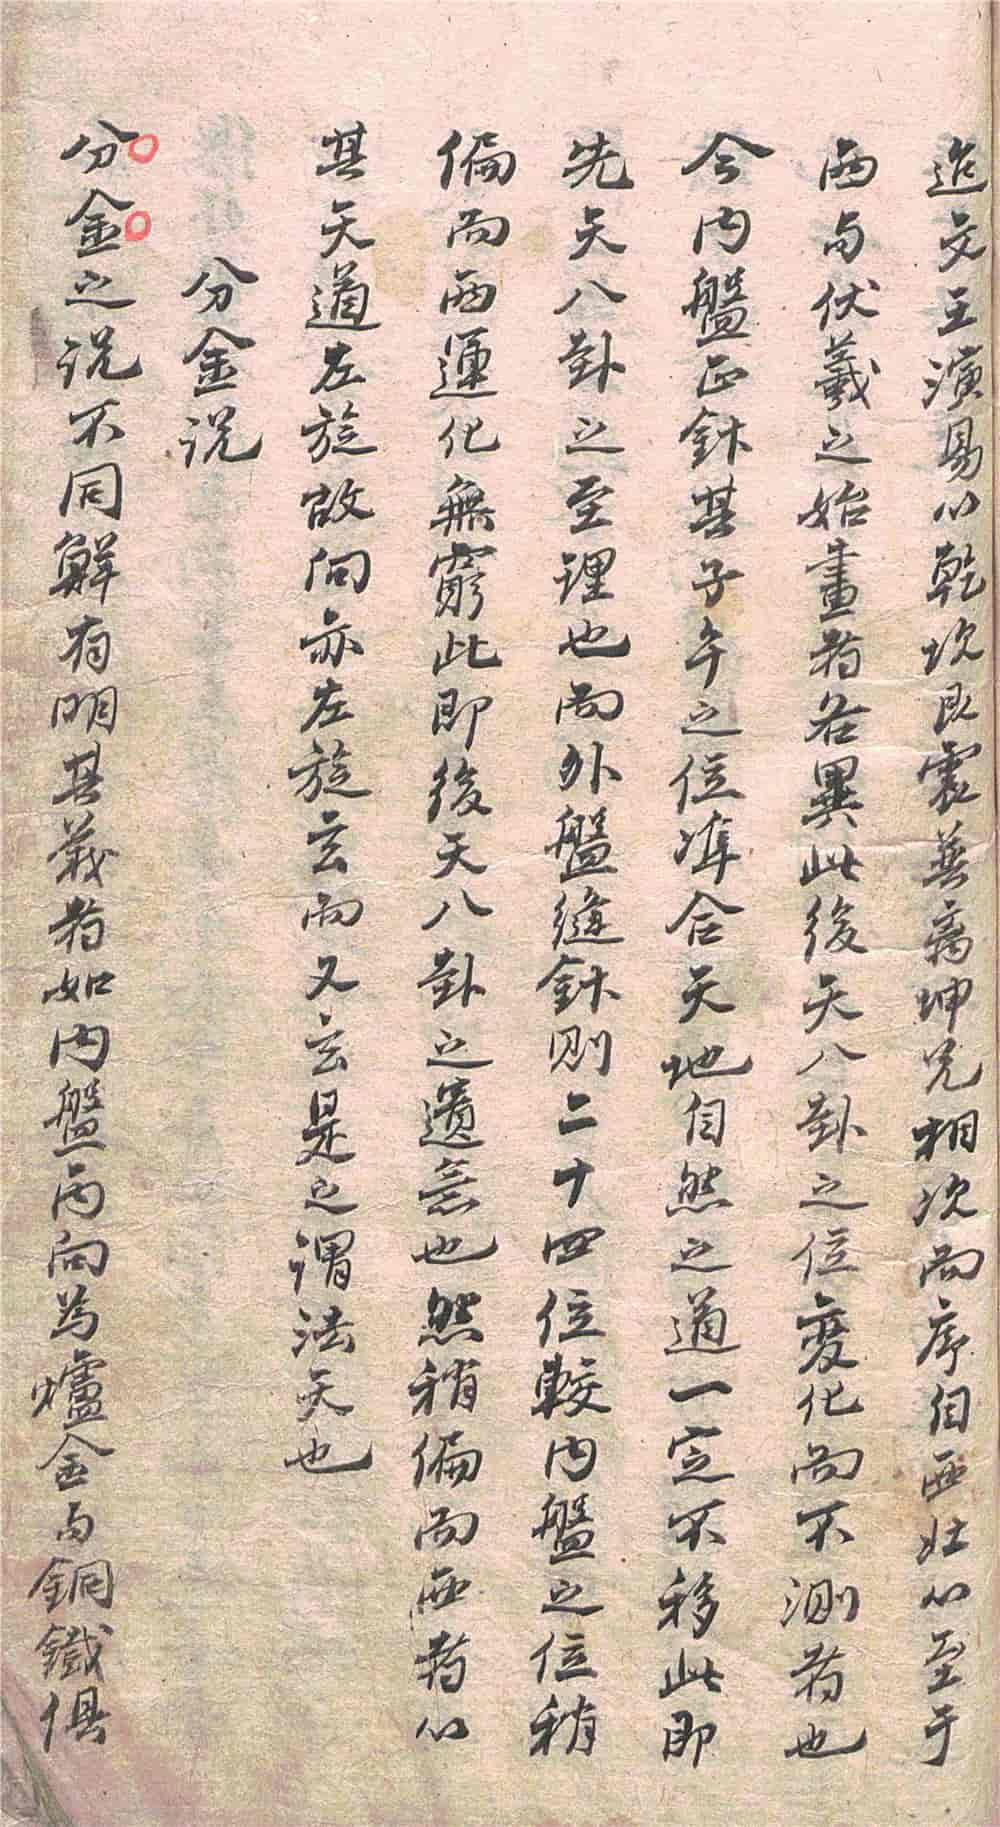 迨文王演易以乾坎艮震巽离坤兑相次而序自西北以至于
西与伏羲之始畫者各異此後天八卦之位变化而不測者也
今内盤正針其子午之位准合天地自然之道一定不移此即
先天八卦之至理也而外盤縫針則二十四位較内盤之位稍
偏而西運化無窮此即後天八卦之遺意也然稍偏而西者以
其天道左旋故向亦左旋玄而又玄是之謂法天也
分金説
分金之説不同解有明其義者如内盤丙向為爐金与銅鐵俱